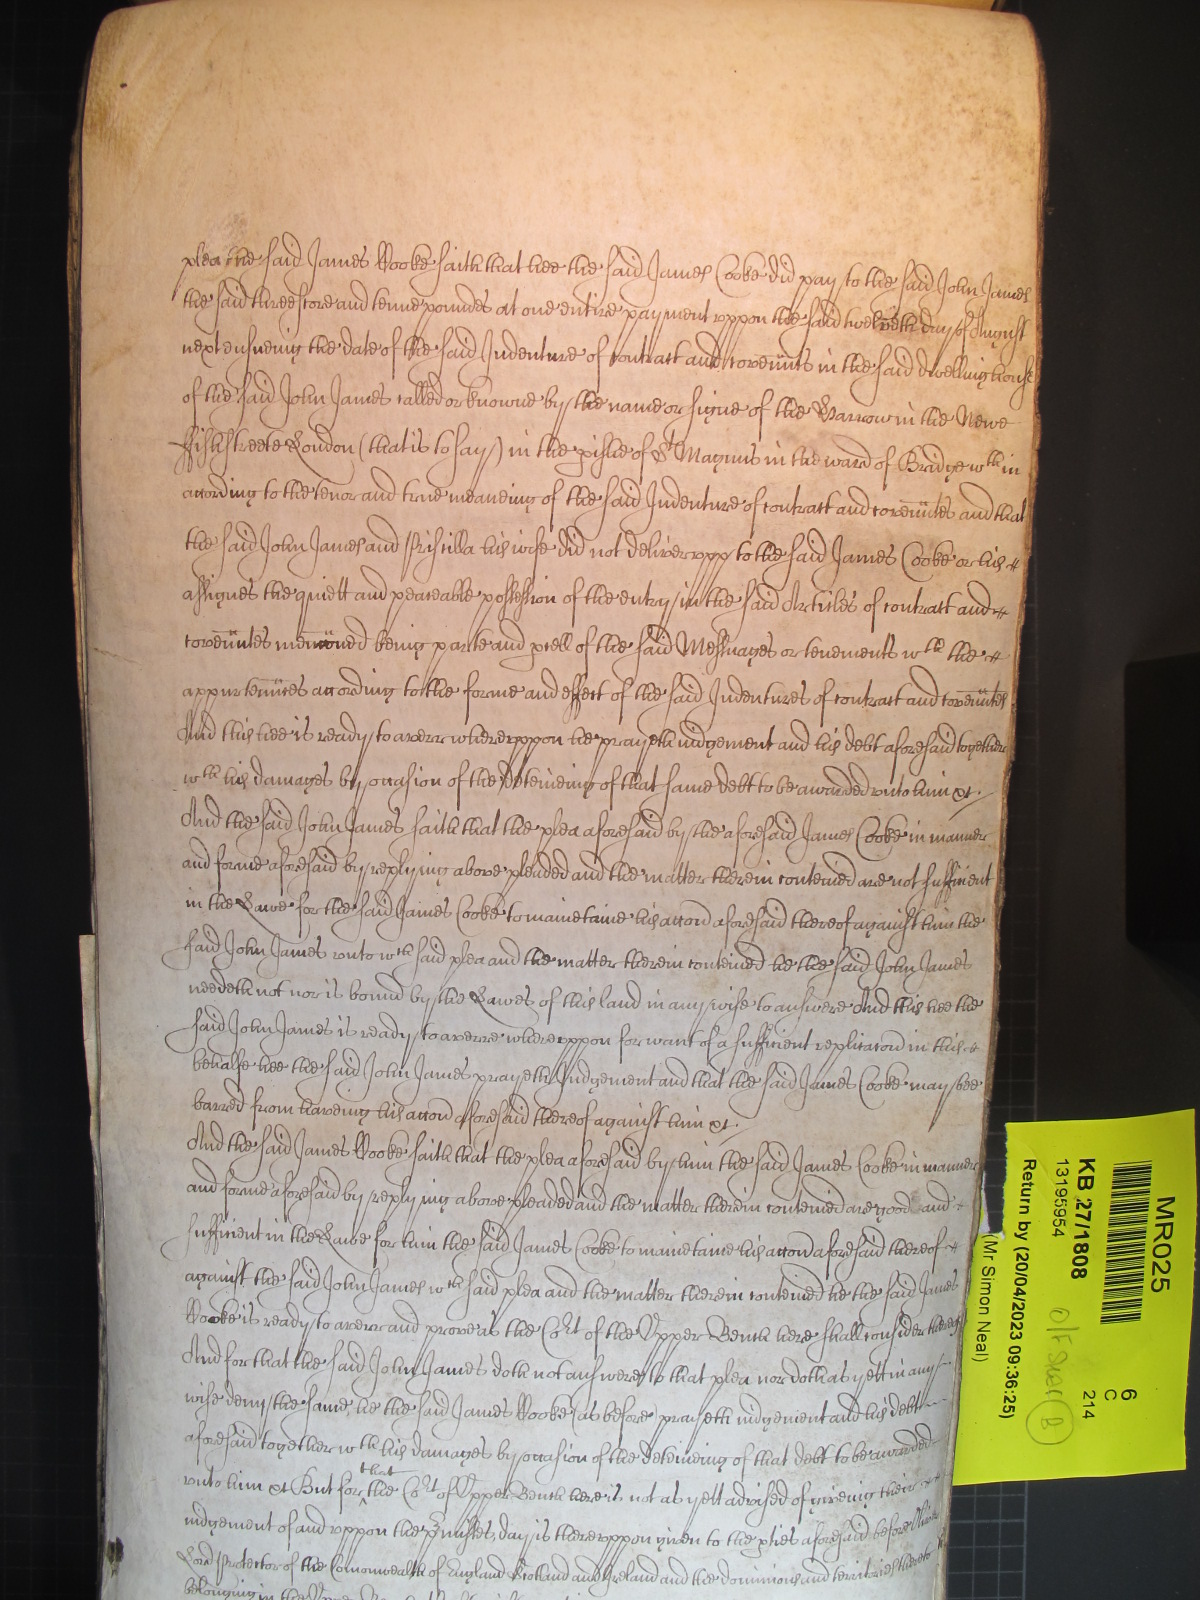 plea the said James Cooke saith that hee the said James Cooke did pay to the said John James
the said threescore and tenne poundes at one entire payment uppon the said twelveth day of August
next ensueing the date of the said Indenture of contract and covenntes in the said dwelling house
of the said John James called or knowne by the name or signe of the Harrow in the Newe
ffish streete London (that is to say) in the pishe of St Magnus in the ward of Bridge wthin
according to the tenor and true meaneing of the said Indenture of contract and covenntes and that
the said John James and Priscilla his wife did not deliver upp to the said James Cooke or his
assignes the quiett and peaceable possession of the entry in the said Articles of contract and
covenntes menconed being parte and pcell of the said Messuages or tenements wth the
appurtennces according to the forme and effect of the said Indentures of contract and covenntes
And this hee is ready to averr whereuppon he prayeth iudgement and his debt aforesaid together
wth his damages by occasion of the deteineing of that same debt to be awarded unto him &c.
And the said John James saith that the plea aforesaid by the aforesaid James Cooke in manner
and forme aforesaid by replying above pleaded and the matter therein conteined are not sufficient
in the Lawe for the said James Cooke to mainetaine his accon aforesaid thereof against him the
said John James unto wch said plea and the matter therein conteined he the said John James
needeth not nor is bound by the Lawes of this land in any wise to answere And this hee the
said John James is ready to averre whereuppon for want of a sufficient replicacon in this
behalfe hee the said John James prayeth Iudgement and that the said James Cooke may bee
barred from haveing his accon aforesaid thereof against him &c.
And the said James Cooke saith that the plea aforesaid by him the said James Cooke in manner
and forme aforesaid by replying above pleaded and the matter therein conteined are good and
sufficient in the Lawe for him the said James Cooke to mainetaine his accon aforesaid thereof
against the said John James wch said plea and the matter therein conteined he the said James
Cooke is ready to averr and prove as the Cort of the Upper Bench here shall consider thereof
And for that the said John James doth not answere to that plea nor doth as yett in any
wise deny the same, he the said James Cooke as before prayeth iudgement and his debt
aforesaid together wth his damages by occasion of the deteineing of that debt to be awarded
unto him &c But for that the Cort of Upper Bench here is not as yett advised of giveing their
iudgement of and uppon the pmisses, day is thereuppon given to the pties aforesaid before Oliver
Lord Protector of the Comonwealth of England Scotland and Ireland and the dominions and territories thereto
belonging in the Upper
MR025
6
C
214
KB 27/1808
13195954
O/F Shelf B
Return by (20/04/2023 09:36:25)
(Mr Simon Neal)